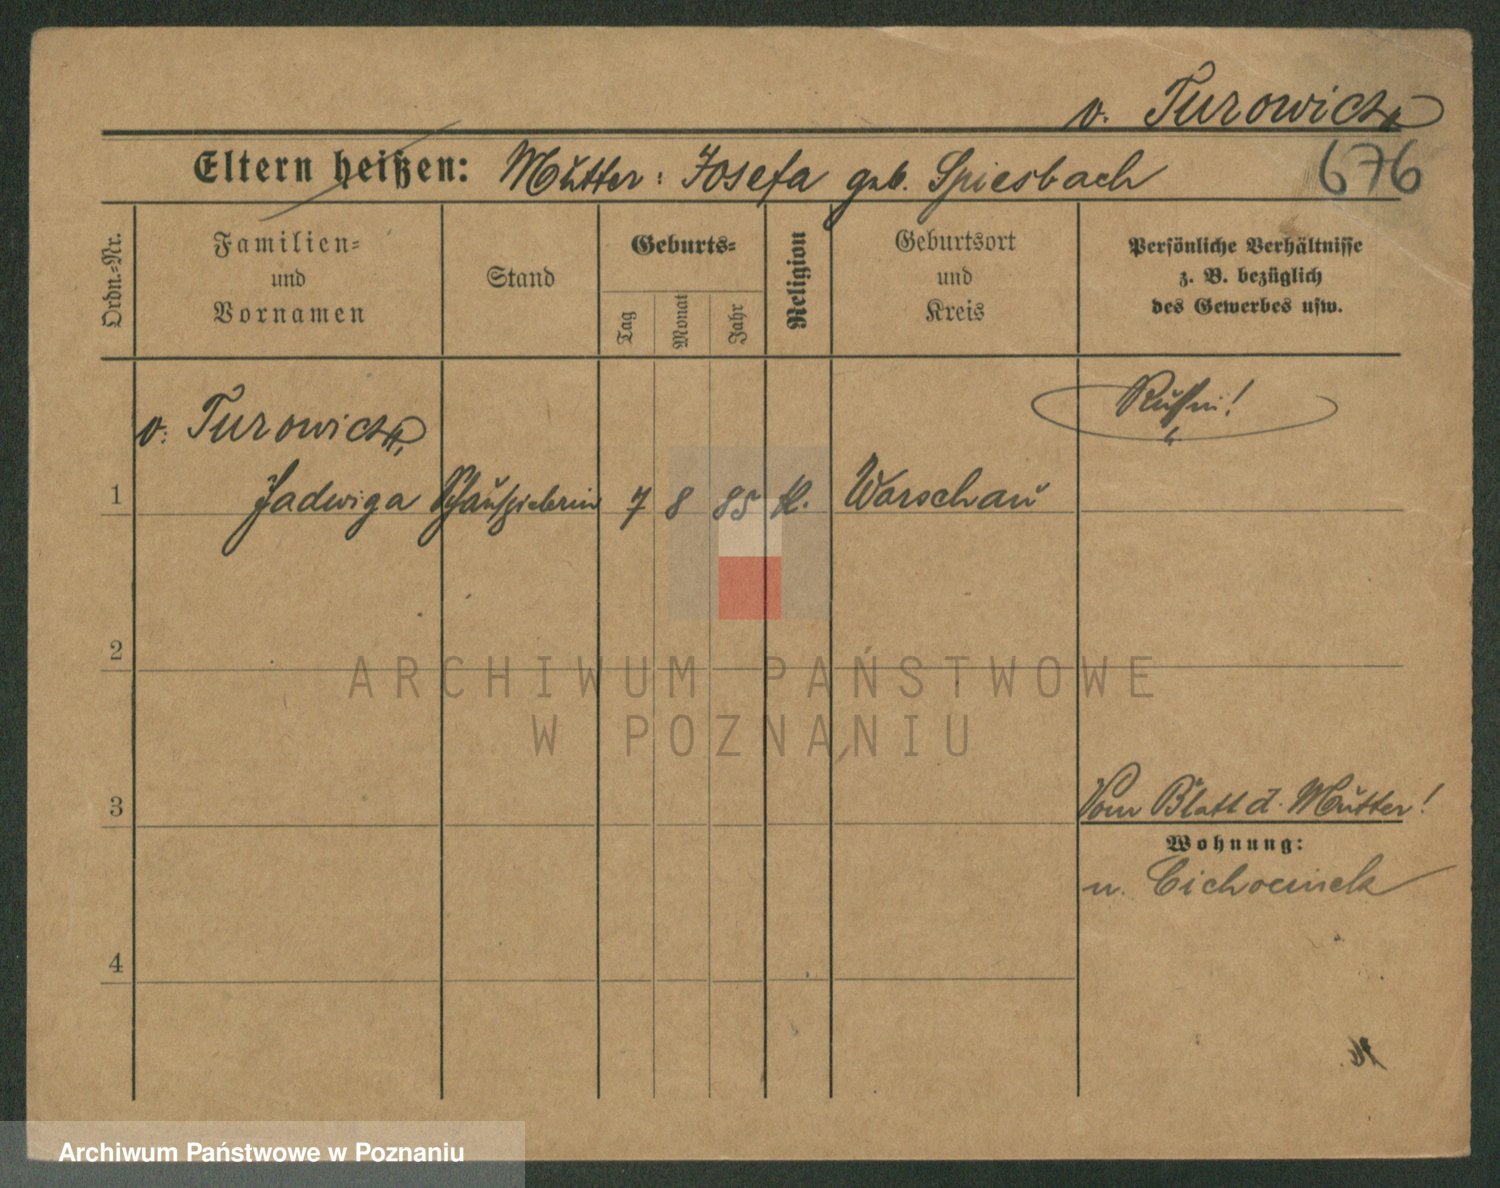 v. Turowicz
676
Eltern heißen: Mutter: Josefa geb. Spiesbach
Ordn.-Nr.
Familien-
und
Vornamen
Stand
Geburts-
Tag
Monat
Jahr
Religion
Geburtsort
und
Kreis
Persönliche Verhältnisse
z. B. bezüglich
des Gewerbes usw.
v. Turowicz,
Russin!
1 Jadwiga Schauspielerin 7 8 85 k. Warschau
2
ARCHIWUM PAŃSTWOWE
W POZNANIU
3
Vom Blatt d. Mutter!
Wohnung:
n. Cichocinek
4
Archiwum Państwowe w Poznaniu